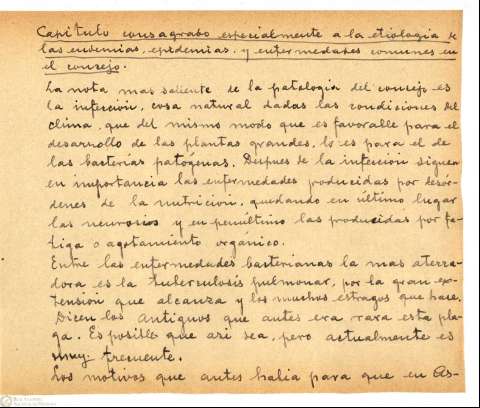 Capitulo consagrado especialmente a la etiologia de
las endemias, epidemias, y enfermedades comunes en
el concejo.
La nota mas saliente de la patologia del concejo es
la infección, cosa natural dadas las condiciones del
clima, que del mismo modo que es favorable para el
desarrollo de las plantas grandes, lo es para el de
las bacterias patógenas. Despues de la infeccion siguen
en importancia las enfermedades producidas por desór-
denes de la nutrición, quedando en último lugar
las neurosis y en penultimo las producidas por fa-
tiga o agotamiento orgánico.
Entre las enfermedades bacterianas la mas aterra-
dora es la tuberculosis pulmonar, por la gran ex-
tensión que alcanza y los muchos estragos que hace.
Dicen los antiguos que antes era rara esta pla-
ga. Es posible que asi sea, pero actualmente es
muy frecuente.
Los motivos que antes habia para que en As-